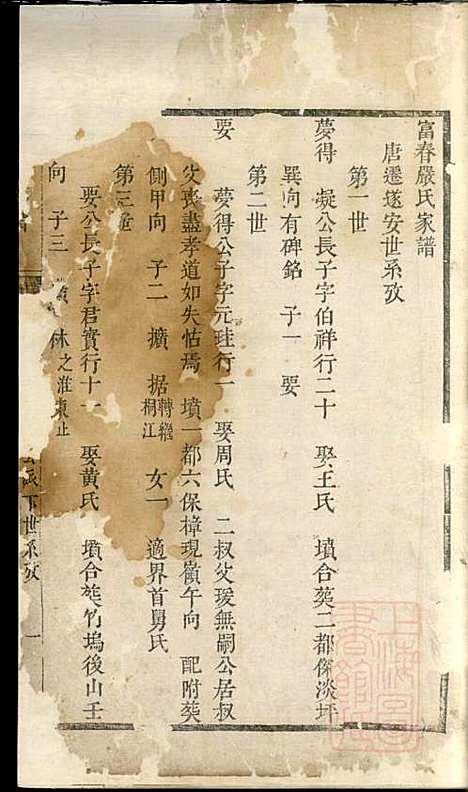 富春嚴氏家譜
唐遷遂安世系攷
第一世
夢得 凝公長子字伯祥行二十 娶王氏 墳合葬二都傑淡坪
巽向有碑銘 子一 要
第二世
要 夢得公子字元珪行一 娶周氏 二叔父瑗無嗣公居叔
父喪盡孝道如失怙焉 墳一都六保樟現嶺午向 配附葬
側甲向 子二 擴 据 轉繼桐江 女一 適界首舅氏
第三世
要公長子字君實行十一 娶黃氏 墳合葬竹塢後山壬
向 子三 林之淮東止
下世系攷 一